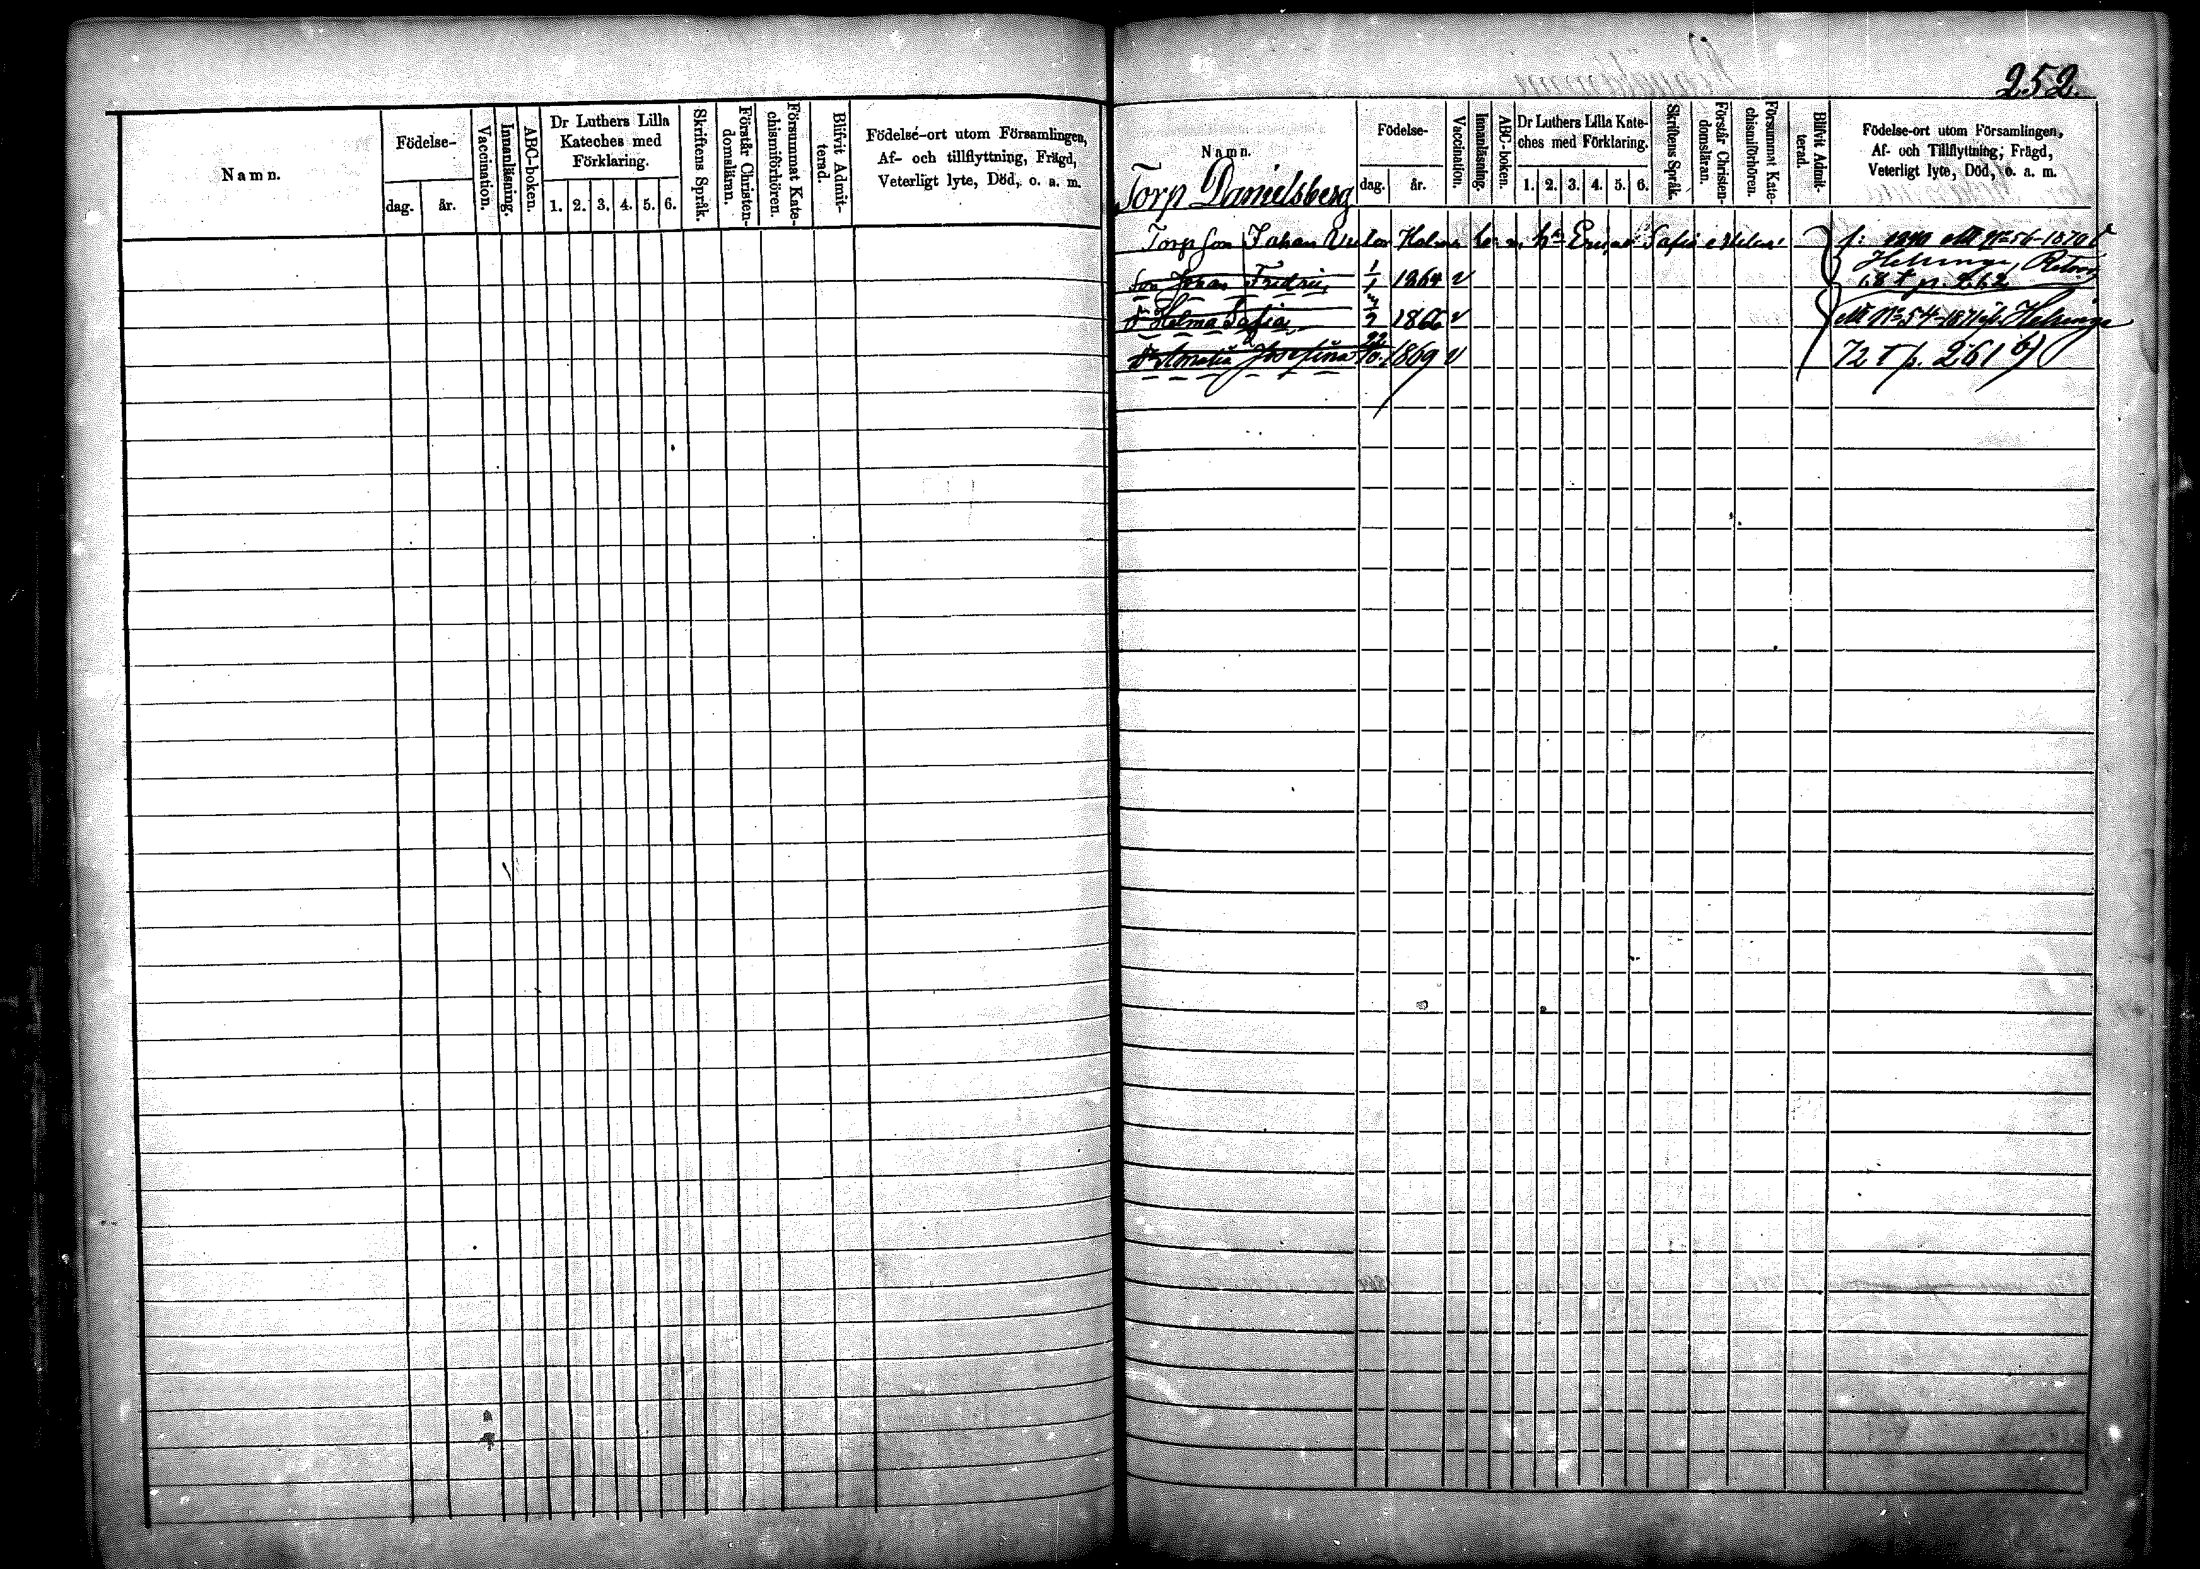 252.
Namn.
Födelse-
dag.
år.
Vaccination.
Innanläsning.
ABC-boken.
Dr Luthers Lilla
Kateches med
Förklaring.
1. 2. 3. 4. 5. 6.
Skriftens Språk.
Förstår Christen-
domsläran.
Försummat Kate-
chismiförhören.
Blifvit Admit-
terad.
Födelse-ort utom Församlingen,
Af- och tillflyttning, Frägd,
Veterligt lyte, Död, o. a. m.
Namn.
Torp Danielsberg
Födelse-
dag.
år.
Vaccination.
Innanläsning.
ABC-boken.
Dr Luthers Lilla Kate-
ches med Förklaring.
1. 2. 3. 4. 5. 6.
Skriftens Språk.
Förstår Christen-
domsläran.
Försummat Kate-
chismiförhören.
Blifvit Admit-
terad.
Födelse-ort utom Församlingen,
Af- och Tillflyttning, Frägd,
Veterligt lyte, Död, o. a. m.
Johan Holm Sofia 56-1870
Helsinge
Son Johan Fredric 1/1 1864 v 68 t p. 262
Helma Sofia 1866 v 54 1871 Helsinge
Amalia Josefina 22/10 1869 v 72 t p. 261